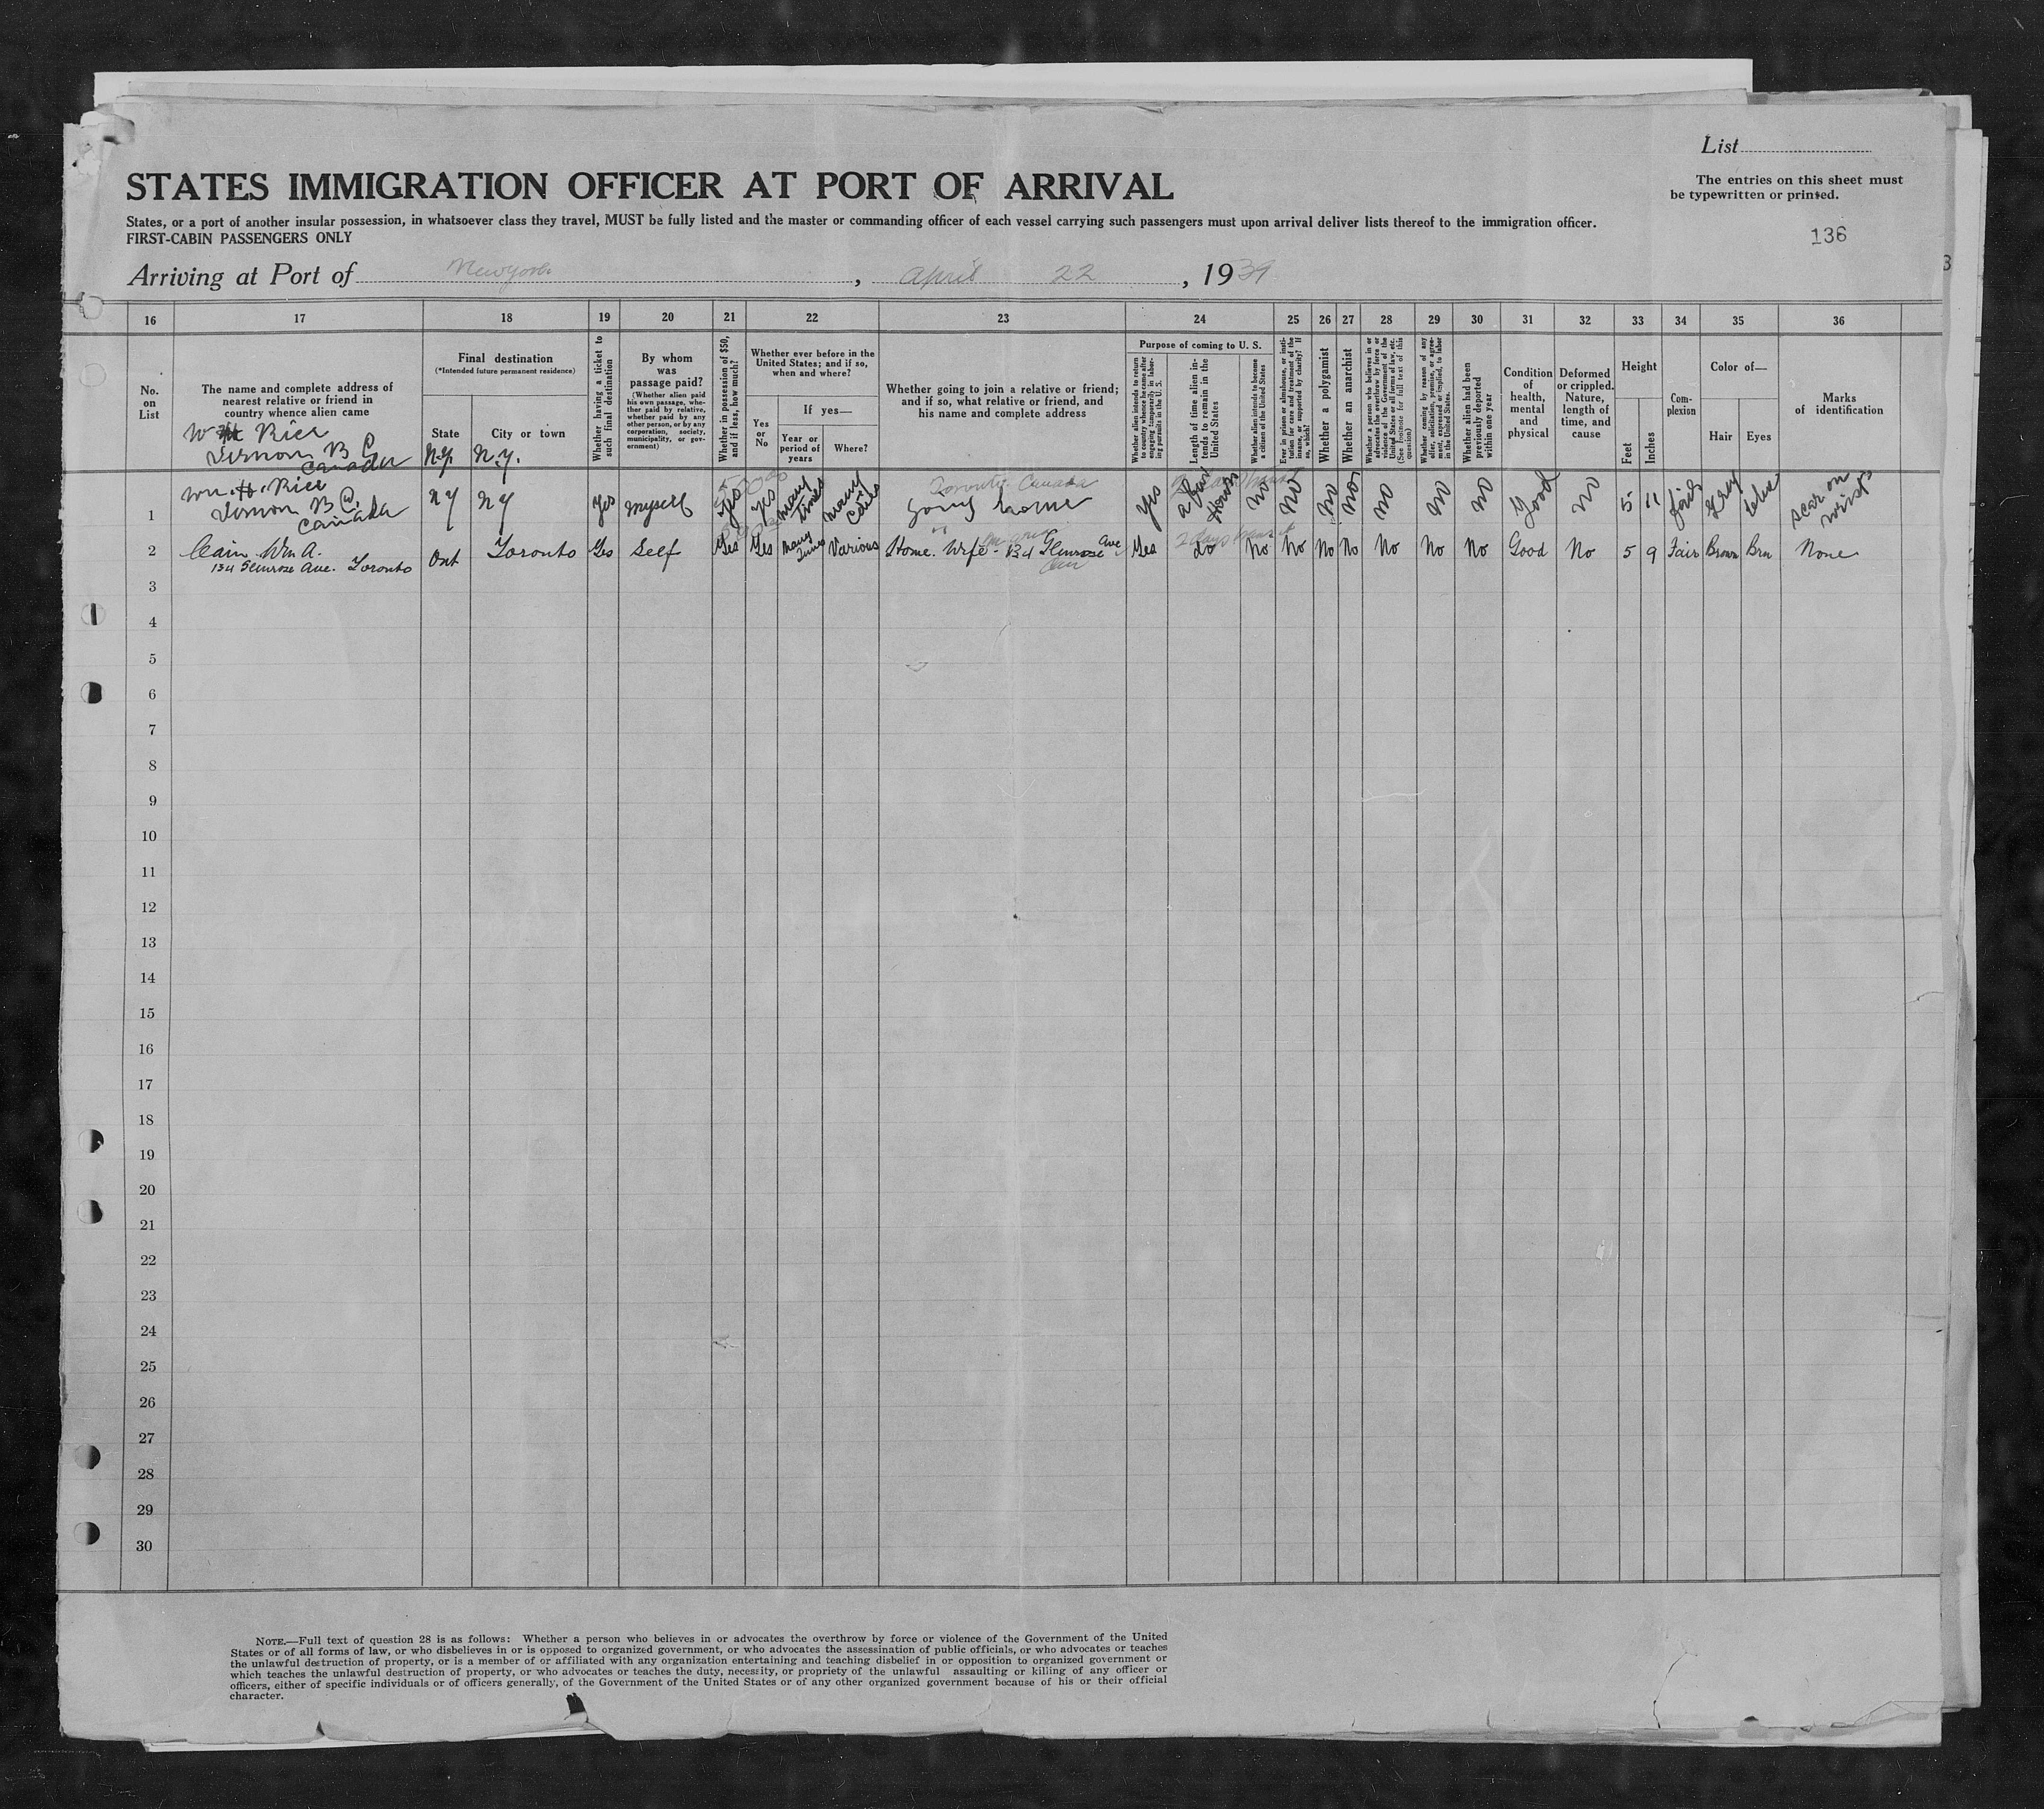 List
STATES IMMIGRATION OFFICER AT PORT OF ARRIVAL
The entries on this sheet must
be typewritten or printed.
States, or a port of another insular possession, in whatsoever class they travel, MUST be fully listed and the master or commanding officer of each vessel carrying such passengers must upon arrival deliver lists thereof to the immigration officer.
FIRST-CABIN PASSENGERS ONLY
136
Arriving at Port of New York, April 22, 1939
16 17 18 19 20 21 22 23 24 25 26 27 28 29 30 31 32 33 34 35 36
No. on List
The name and complete address of
nearest relative or friend in
country whence alien came
Final destination
(*Intended future permanent residence)
State
City or town
Whether having a ticket to such final destination
By whom
was
passage paid?
(Whether alien paid
his own passage, whe-
ther paid by relative,
whether paid by any
other person, or by any
corporation, society,
municipality, or gov-
ernment)
Whether in possession of $50, and if less, how much?
Whether ever before in the
United States; and if so,
when and where?
Yes or No
If yes—
Year or
period of
years
Where?
Whether going to join a relative or friend;
and if so, what relative or friend, and
his name and complete address
Purpose of coming to U. S.
Whether alien intends to return to country whence he came after engaging temporarily in laboring pursuits in the U. S.
Length of time alien intends to remain in the United States
Whether alien intends to become a citizen of the United States
Ever in prison or almshouse, or institution for care and treatment of the insane, or supported by charity? If so, which?
Whether a polygamist
Whether an anarchist
Whether a person who believes in or advocates the overthrow by force or violence of the Government of the United States or all forms of law, etc. (See footnote for full text of this question)
Whether coming by reason of any offer, solicitation, promise, or agreement, expressed or implied, to labor in the United States.
Whether alien had been previously deported within one year
Condition
of
health,
mental
and
physical
Deformed
or crippled.
Nature,
length of
time, and
cause
Height
Feet
Inches
Com-
plexion
Color of—
Hair
Eyes
Marks
of identification
W H Rice
Vernon B C
Canada
N.Y. N.Y.
1 Wm. H. Rice
Vernon B C.
Canada
NY NY Yes myself Yes Yes many times many Cities
Toronto Canada
going home Yes a few Hours No No No No No No No Good No 5 11 fair Grey blue scar on wrist
2 Cain Wm A.
134 Glenrose Ave. Toronto
Ont Toronto Yes Self Yes Yes Many Times Various Home. Wife - 134 Glenrose Ave Yes 2 days do No No No No No No No Good No 5 9 Fair Brown Brn None
3
4
5
6
7
8
9
10
11
12
13
14
15
16
17
18
19
20
21
22
23
24
25
26
27
28
29
30
NOTE.—Full text of question 28 is as follows: Whether a person who believes in or advocates the overthrow by force or violence of the Government of the United
States or of all forms of law, or who disbelieves in or is opposed to organized government, or who advocates the assassination of public officials, or who advocates or teaches
the unlawful destruction of property, or is a member of or affiliated with any organization entertaining and teaching disbelief in or opposition to organized government or
which teaches the unlawful destruction of property, or who advocates or teaches the duty, necessity, or propriety of the unlawful assaulting or killing of any officer or
officers, either of specific individuals or of officers generally, of the Government of the United States or of any other organized government because of his or their official
character.